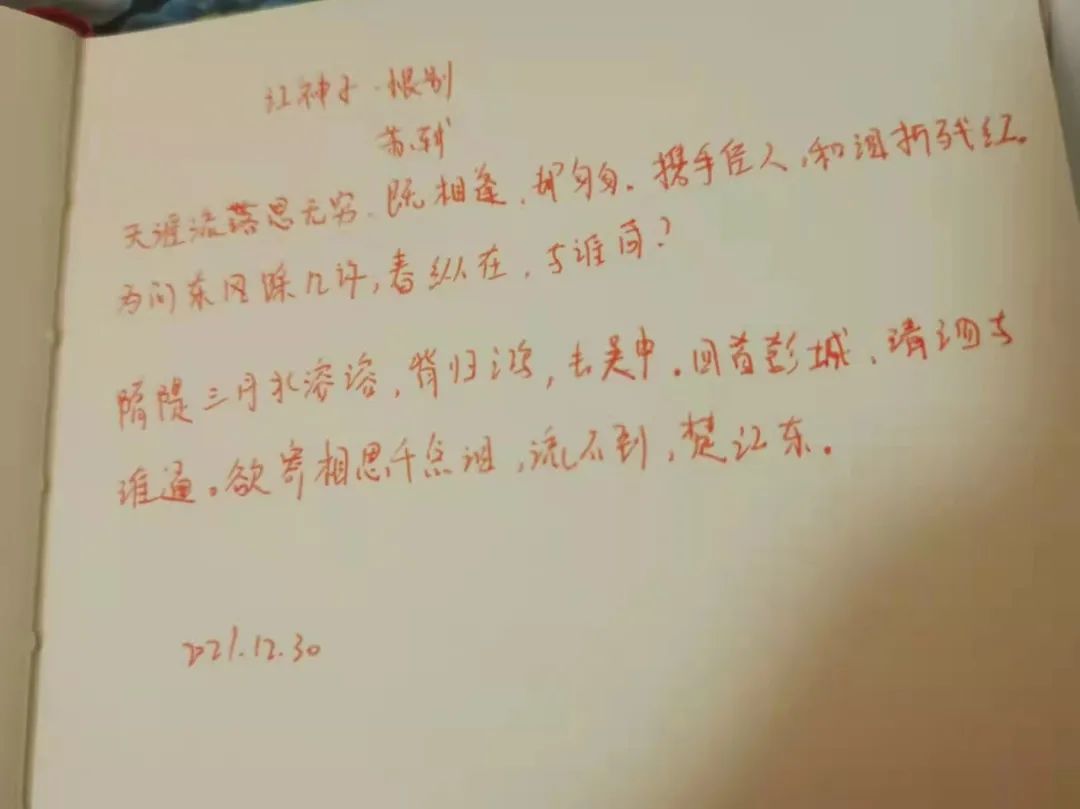 江神子·恨别
苏轼
天涯流落思无穷。既相逢，却匆匆。携手佳人，和泪折残红。
为问东风余几许，春纵在，与谁同？
隋堤三月水溶溶，背归鸿，去吴中。回首彭城，清泗与
淮通。欲寄相思千点泪，流不到，楚江东。
2021.12.30